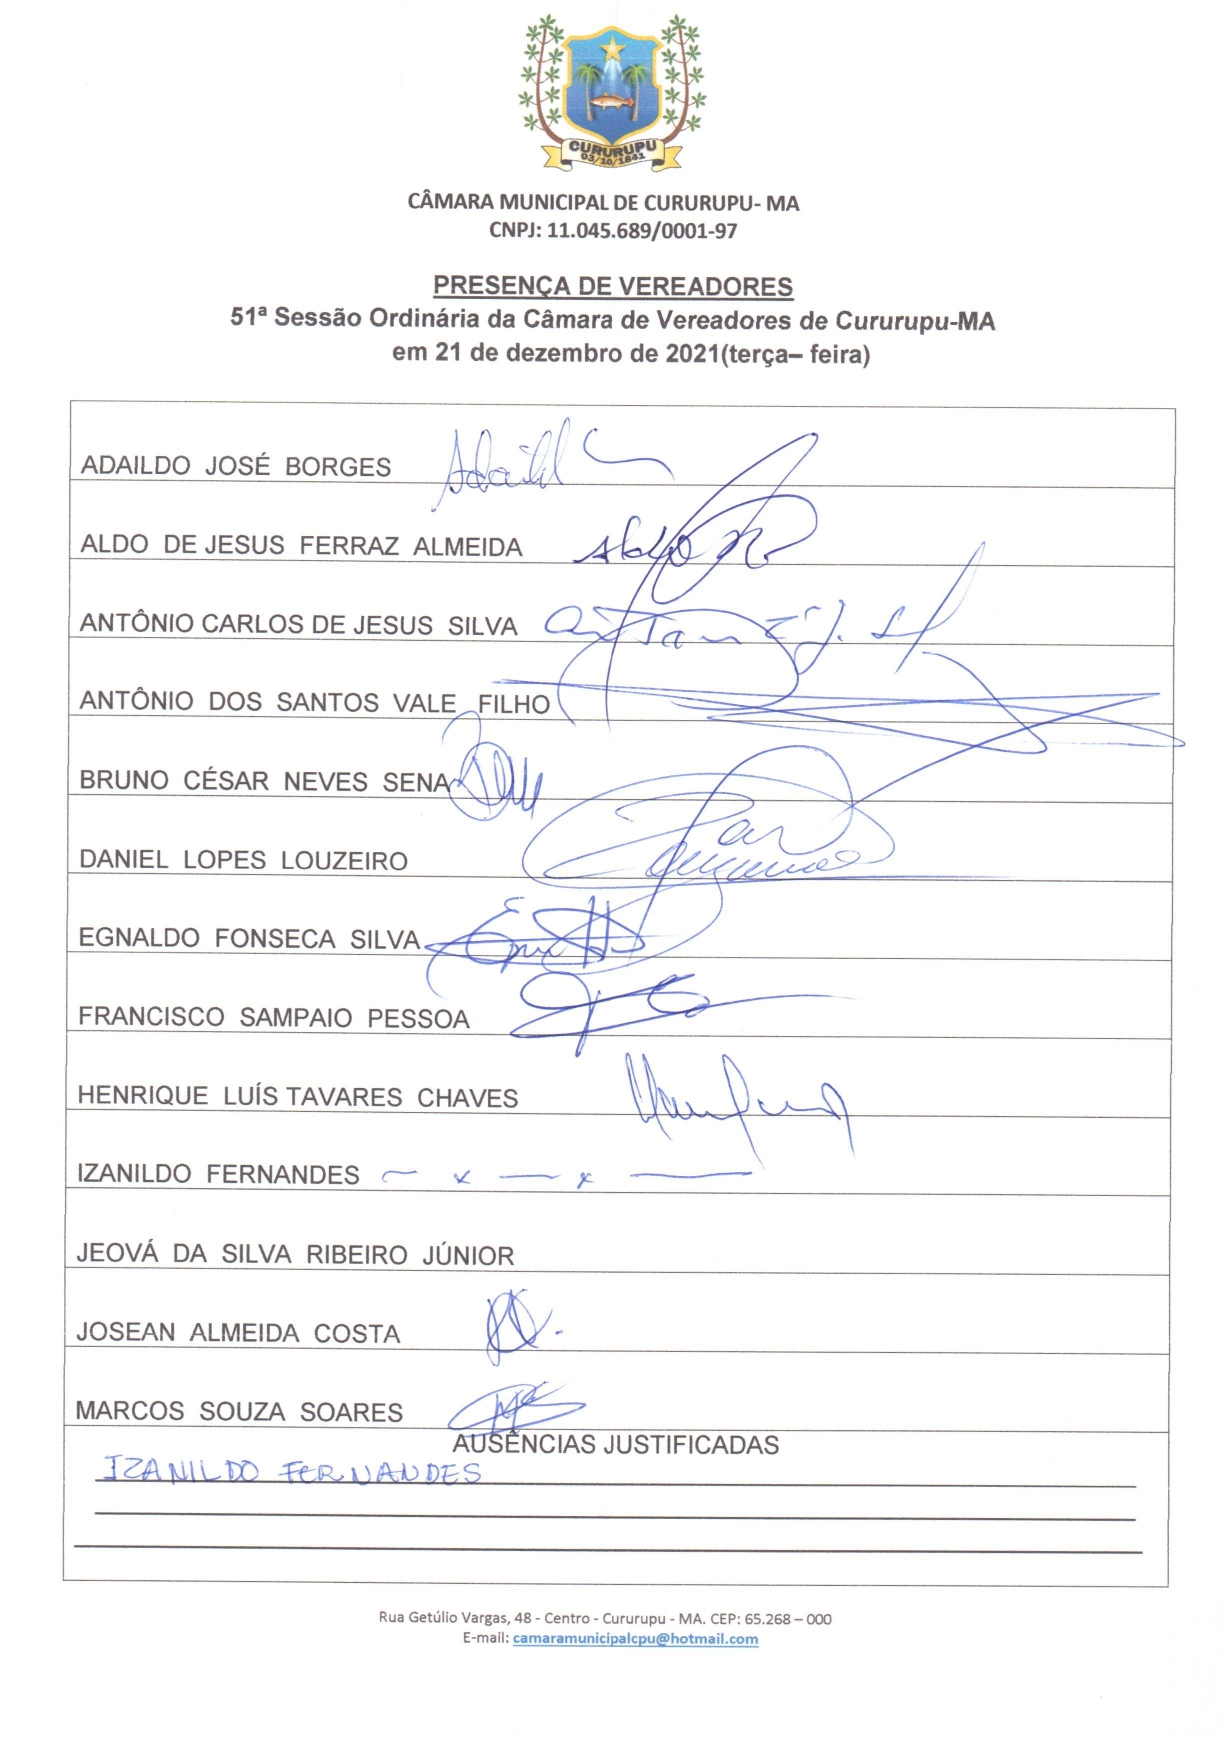 CURURUPU
03/10/1841
CÂMARA MUNICIPAL DE CURURUPU- MA
CNPJ: 11.045.689/0001-97
PRESENÇA DE VEREADORES
51ª Sessão Ordinária da Câmara de Vereadores de Cururupu-MA
em 21 de dezembro de 2021(terça– feira)
ADAILDO JOSÉ BORGES
ALDO DE JESUS FERRAZ ALMEIDA
ANTÔNIO CARLOS DE JESUS SILVA
ANTÔNIO DOS SANTOS VALE FILHO
BRUNO CÉSAR NEVES SENA
DANIEL LOPES LOUZEIRO
EGNALDO FONSECA SILVA
FRANCISCO SAMPAIO PESSOA
HENRIQUE LUÍS TAVARES CHAVES
IZANILDO FERNANDES — x — x —
JEOVÁ DA SILVA RIBEIRO JÚNIOR
JOSEAN ALMEIDA COSTA
MARCOS SOUZA SOARES
AUSÊNCIAS JUSTIFICADAS
IZANILDO FERNANDES
Rua Getúlio Vargas, 48 - Centro - Cururupu - MA. CEP: 65.268 – 000
E-mail: camaramunicipalcpu@hotmail.com